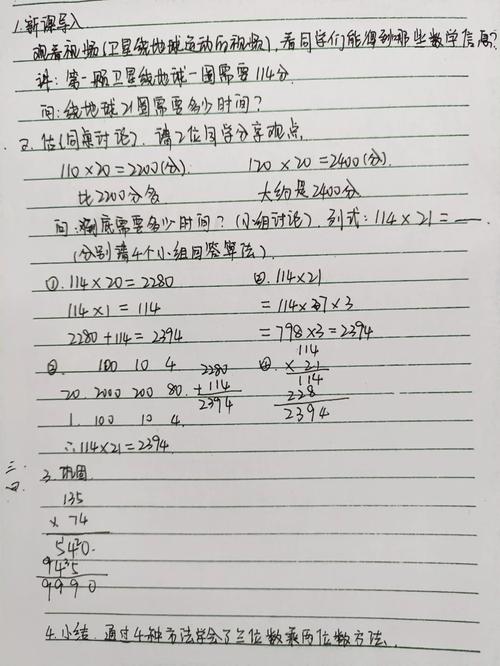 1.新课导入
观看视频(卫星绕地球运动的视频),看同学们能得到哪些数学信息?
讲:第一颗卫星绕地球一圈需要114分
问:绕地球21圈需要多少时间?
二.估(同桌讨论).请2位同学分享观点.
110×20=2200(分). 120×20=2400(分).
比2200分多 大约是2400分
问:到底需要多少时间?(小组讨论).列式:114×21=
(分别请4个小组回答算法).
①.114×20=2280 ②.114×21
114×1=114 =114×7×3
2280+114=2394 =798×3=2394
③. 100 10 4 2280 ④. 114
20. 2000 200 80. +114 × 21
1. 100 10 4. 2394 114
228
2394
∴114×21=2394.
三.
四. 3.巩固
135
× 74
540.
945
9990
4.小结.通过4种方法学会了三位数乘两位数方法.